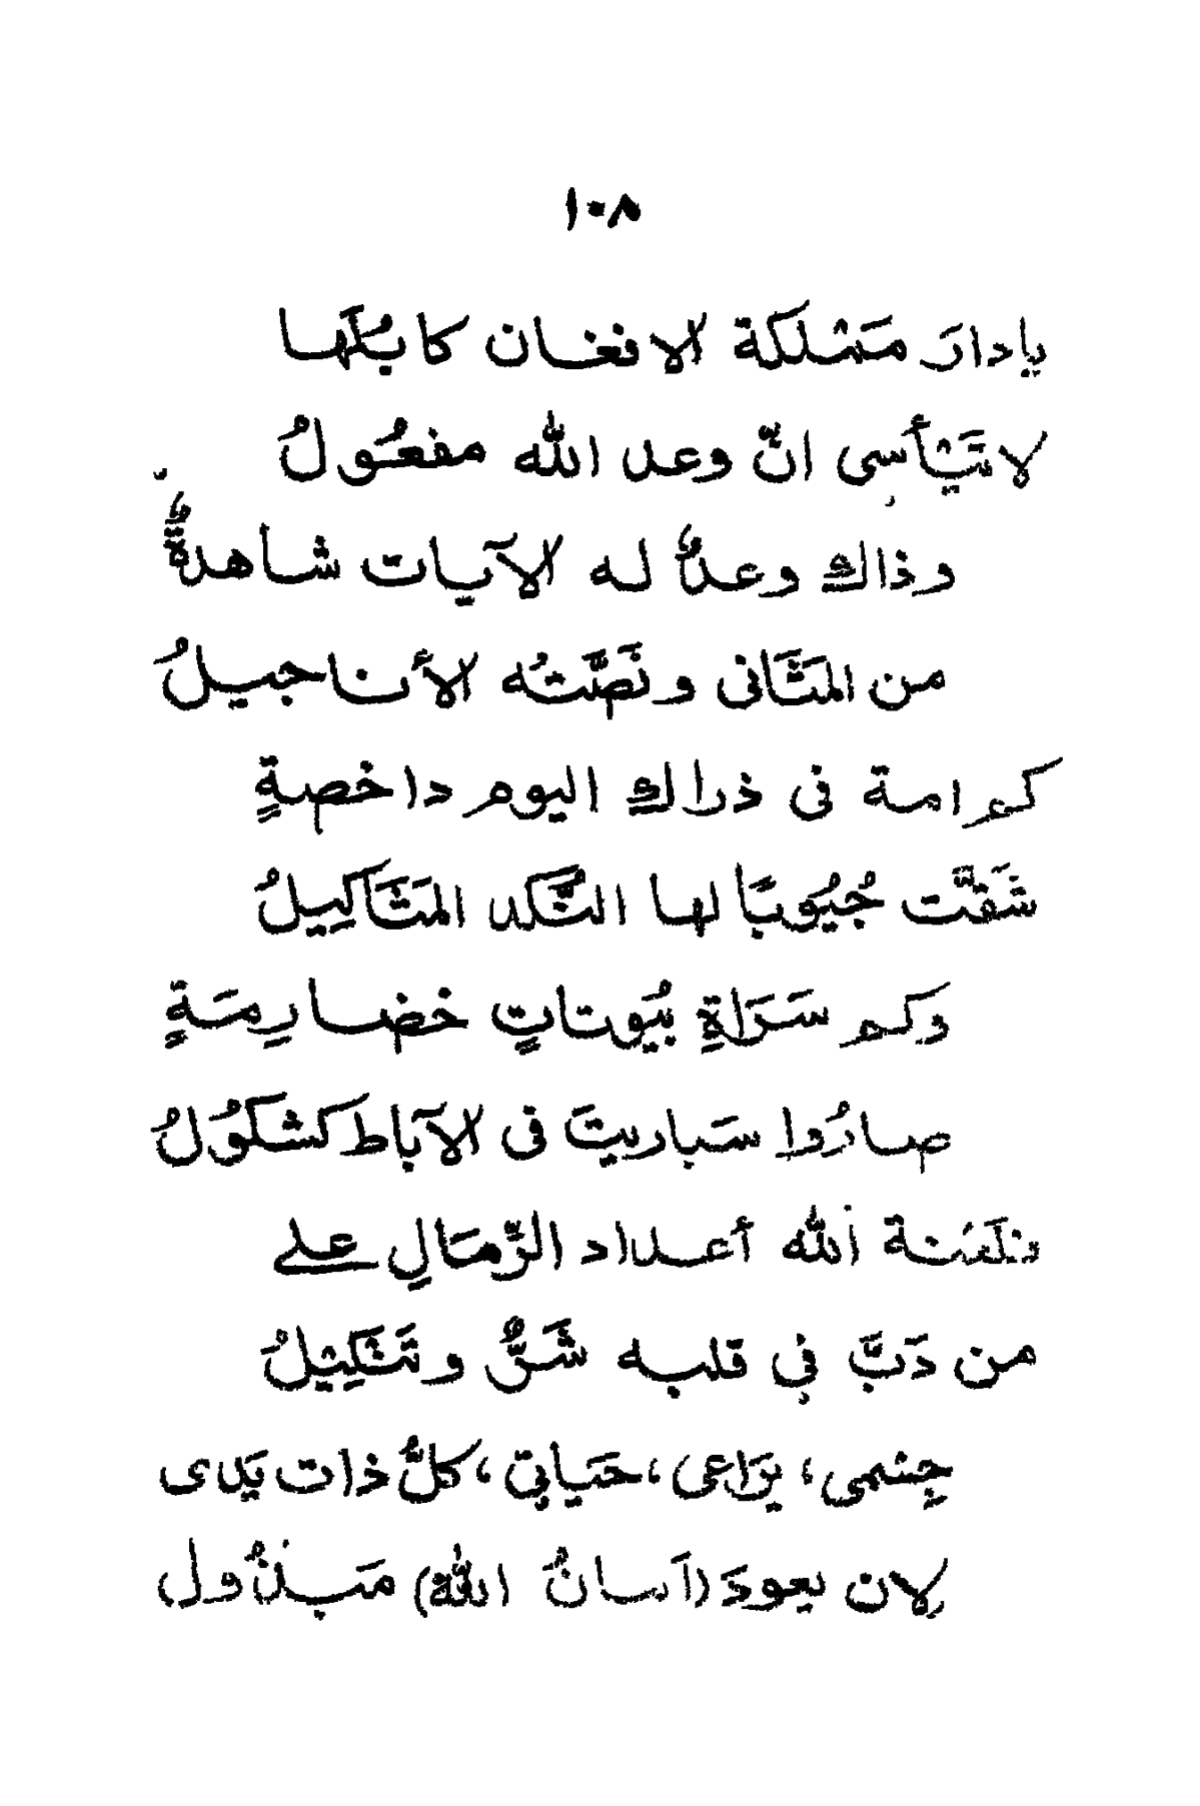 ١٠٨
يادارَ مَمْلَكة الافغان كابُلَها
لا تَيْأسِى انّ وعد الله مفعُولُ
وذاك وعدٌ له الآيات شاهدةٌ
من المَثَانى ونَصَّتْه الأناجيلُ
كم امة فى ذراك اليوم داخصةٍ
شَقَّت جُيُوبًا لها النُّكد المَثَاكِيلُ
وكم سَرَاةِ بُيُوتاتٍ خضارِمَةٍ
صارُوا سَباريتَ فى الآباط كشكَولُ
فلَعْنة الله أعداد الرِّمَالِ على
من دَبَّ فِي قلبه شَرٌّ وتَثْكِيْلُ
جِسْمى، يَرَاعى، حَيَاتِى، كلُّ ذات يَدى
لِان يعودَ (آسانُ اللهُ) مَبذُول